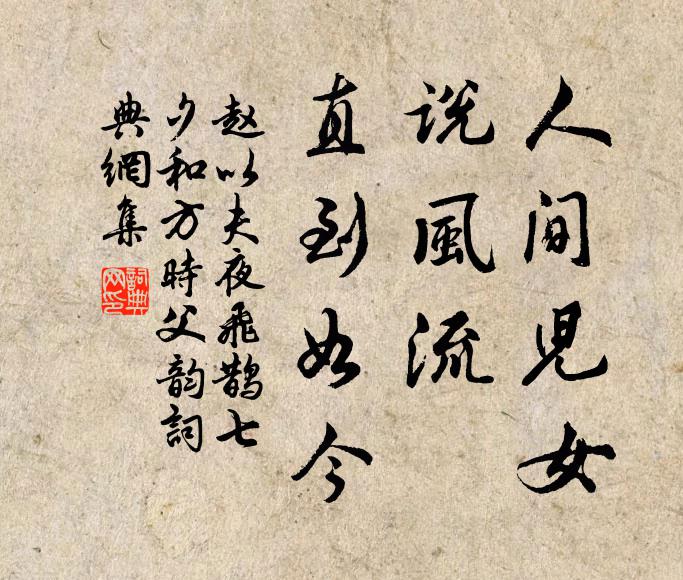 人間兒女
說風流
直到如今
赵以夫夜飛鵲七
夕和方時父韵詞
典網集
詞典网印